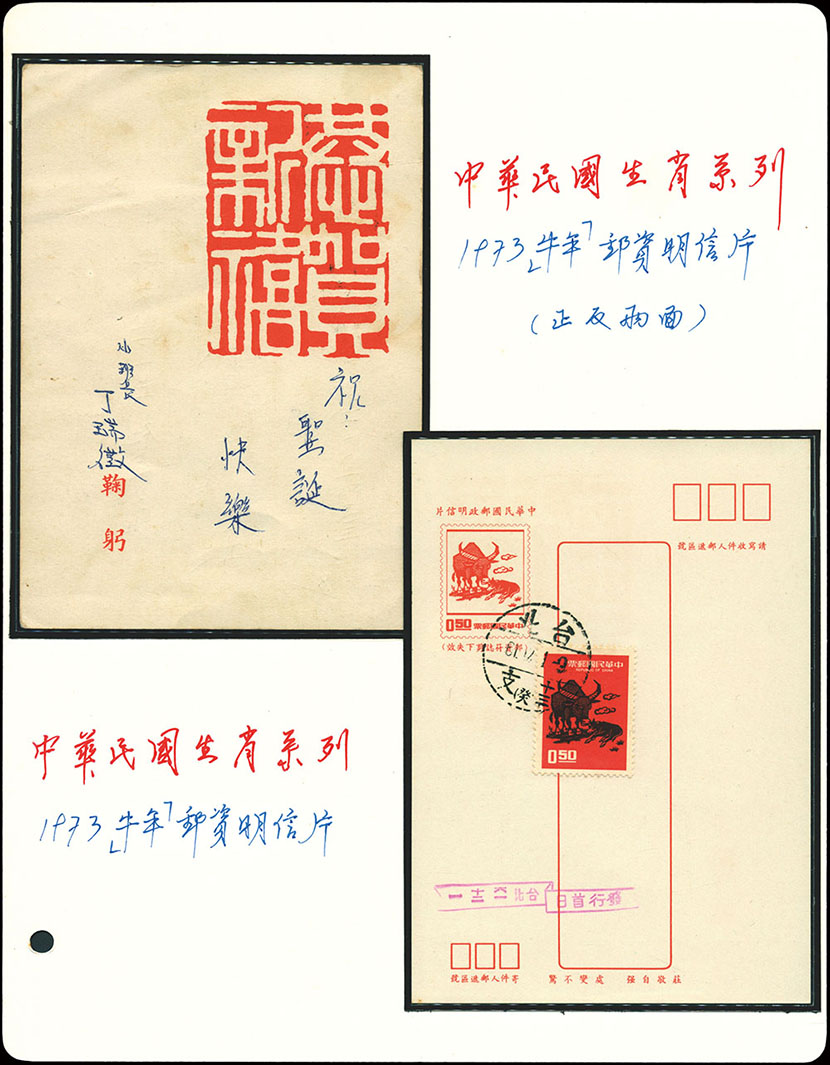 恭賀
新禧
祝
聖誕
快樂
小班長
丁瑞徵
鞠躬
中華民國生肖系列
1973「牛年」郵資明信片
(正反兩面)
中華民國郵政明信片
請寫收件人郵遞區號
中華民國郵票
0.50
(郵資符誌剪下失效)
台北
中華民國郵票
REPUBLIC OF CHINA
0.50
發行首日 台北 六一 十二 一
莊敬自強 處變不驚
寄件人郵遞區號
中華民國生肖系列
1973「牛年」郵資明信片